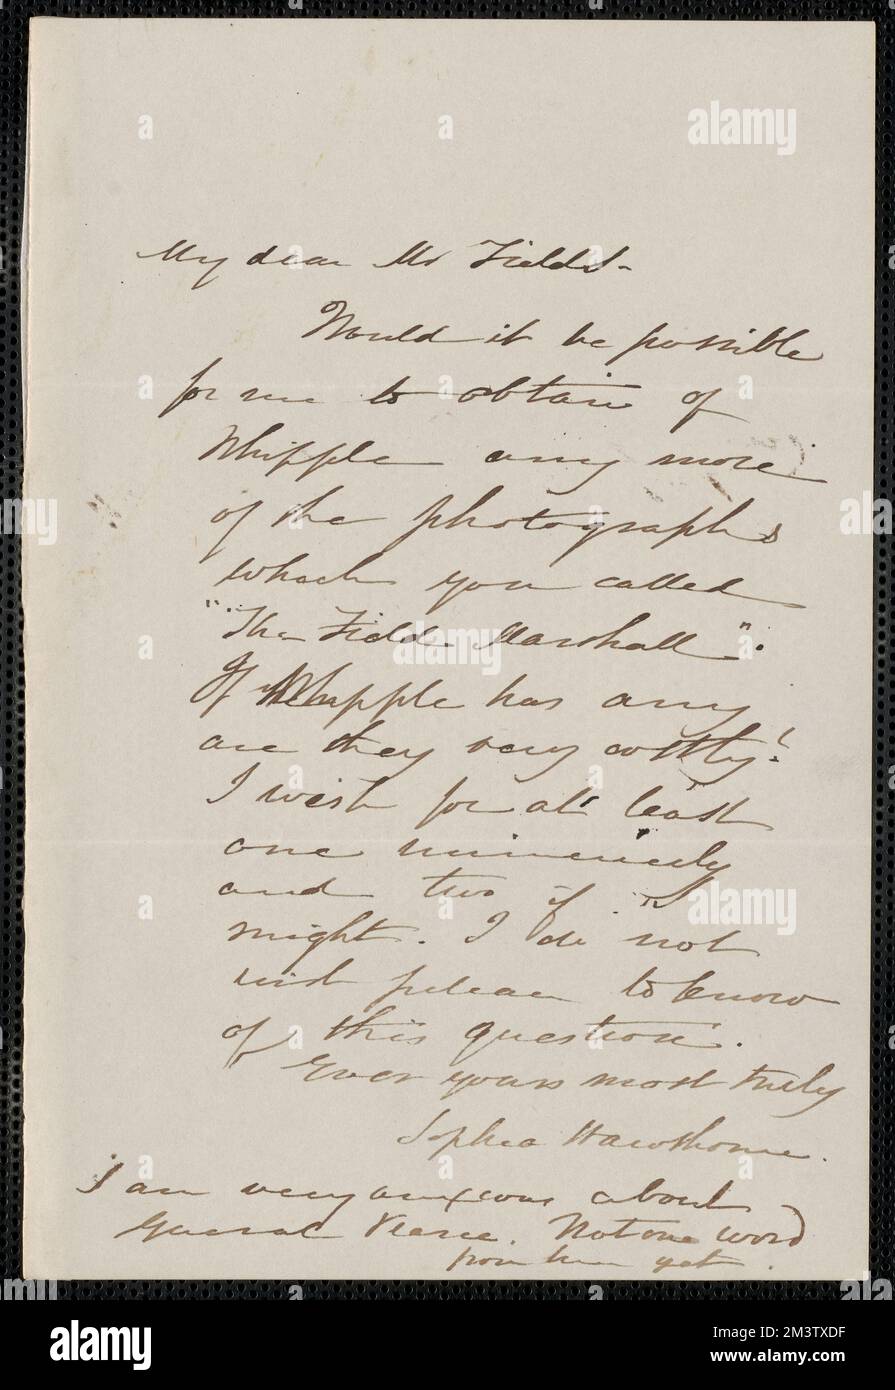 My dear Mr Fields.
Would it be possible
for me to obtain of
Whipple any more
of the photographs
which you called
"The Field Marshall".
If Whipple has any
are they very costly?
I wish for at least
one
and two if I
might. I do not
wish to know
of this question.
Ever yours most truly
Sophia Hawthorne.
I am very anxious about
General Pierce. Not one word
from him yet.
alamy
Image ID: 2M3TXDF
www.alamy.com